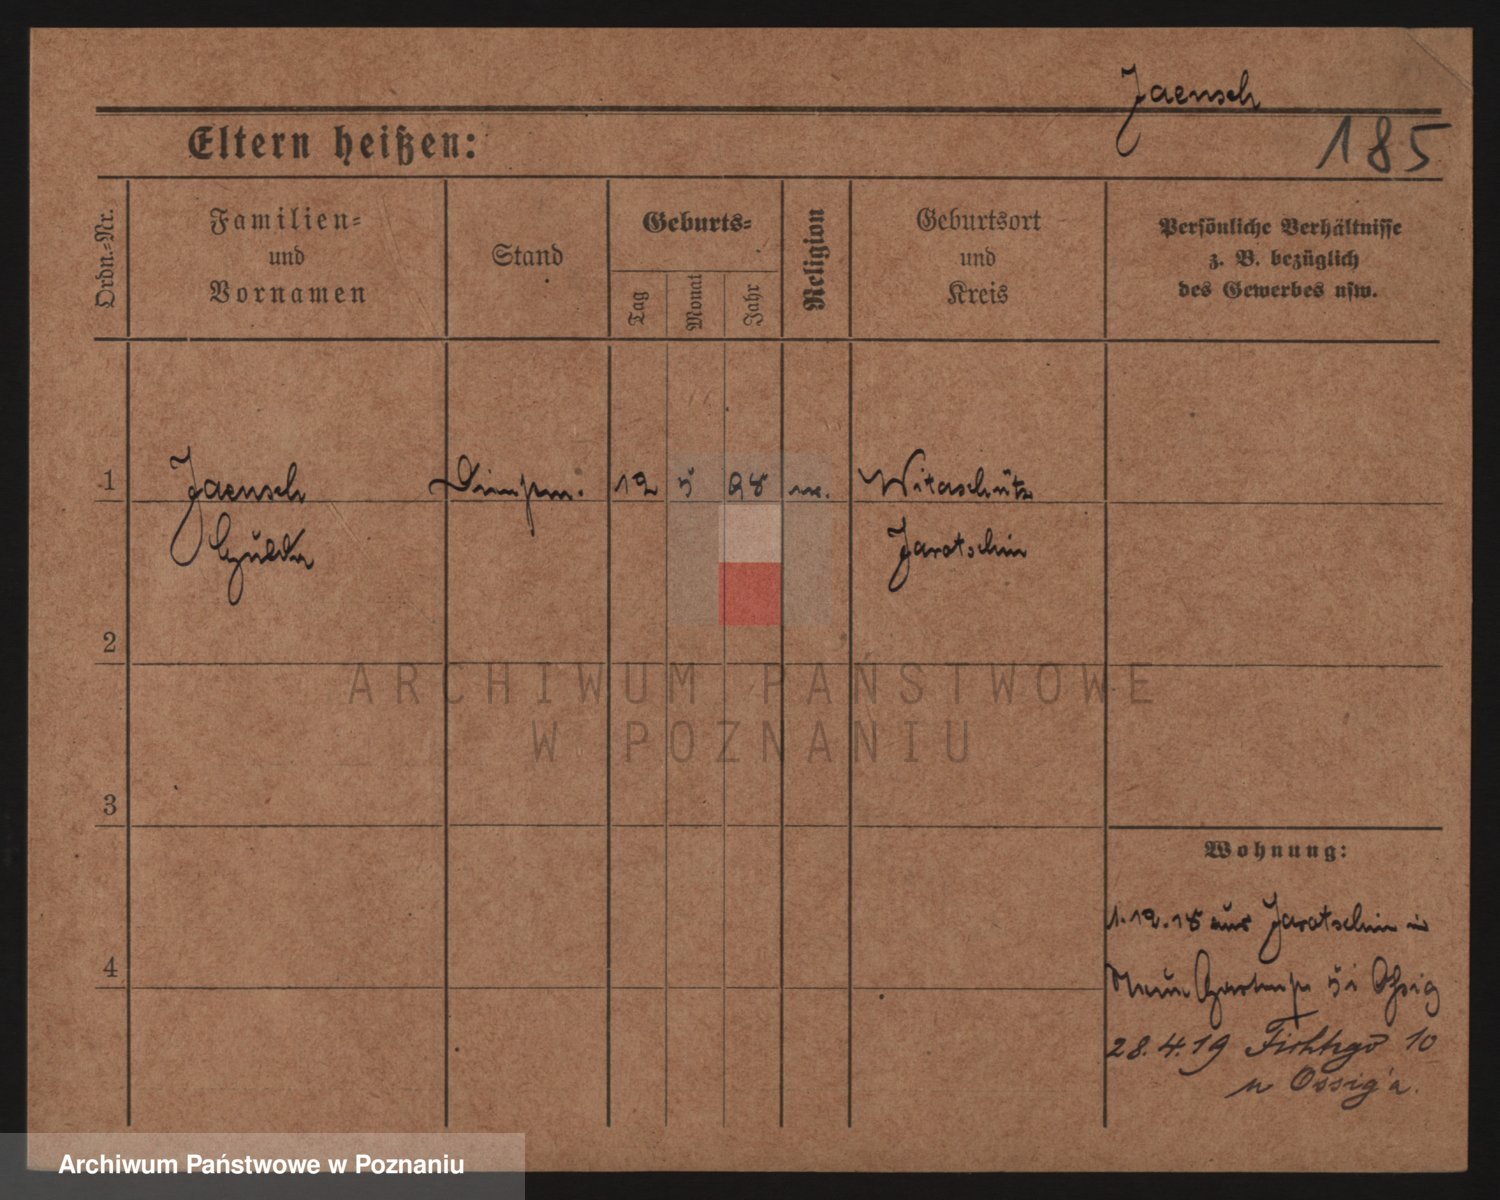 Jaensch
185
Eltern heißen:
Ordn.-Nr.
Familien-
und
Vornamen
Stand
Geburts-
Tag
Monat
Jahr
Religion
Geburtsort
und
Kreis
Persönliche Verhältnisse
z. B. bezüglich
des Gewerbes usw.
1
Jaensch
12 5 98
Witaschütz
Jarotschin
2
ARCHIWUM PAŃSTWOWE
W POZNANIU
3
Wohnung:
1.12.18 aus Jarotschin in
Ossig
4
28.4.19 10
u Ossig'a.
Archiwum Państwowe w Poznaniu